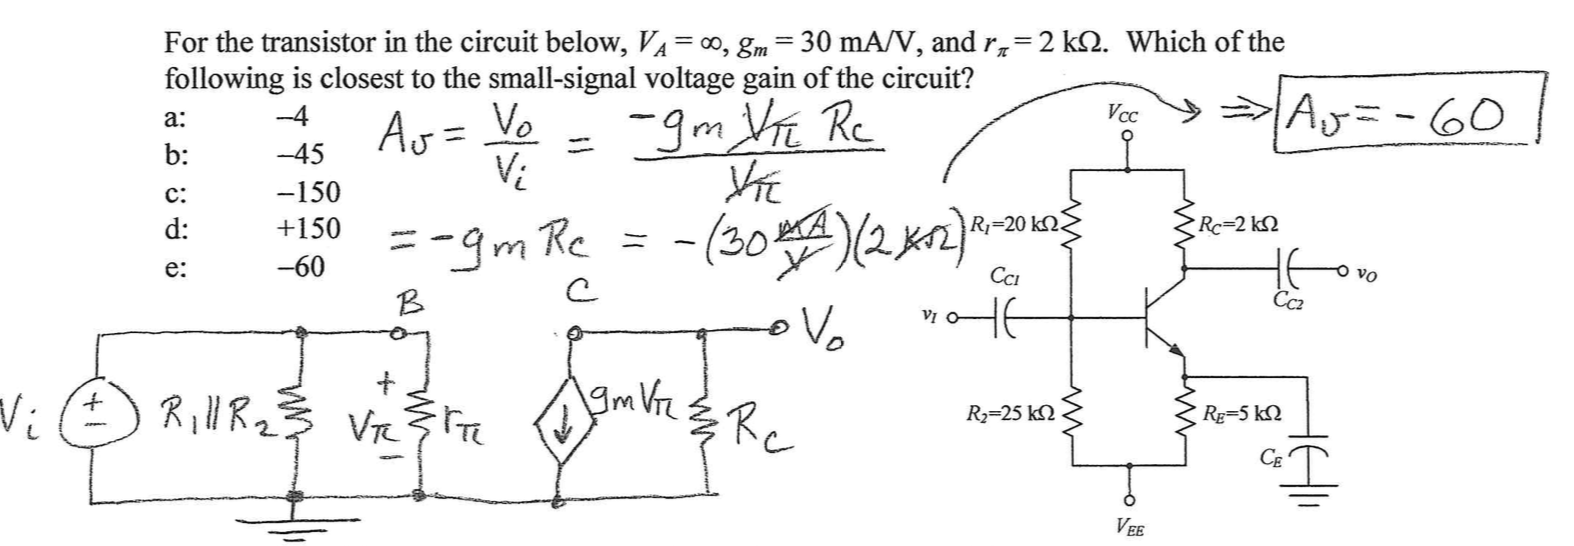 For the transistor in the circuit below, V_A = ∞, g_m = 30 mA/V, and r_π = 2 kΩ. Which of the
following is closest to the small-signal voltage gain of the circuit?
a: –4
b: –45
c: –150
d: +150
e: –60
Av = Vo/Vi = -gm Vπ Rc / Vπ
= -gm Rc = -(30 mA/V)(2 kΩ)
⇒ Av = -60
B
C
Vo
Vi
+
−
R1||R2
+
Vπ
−
rπ
gmVπ
Rc
VCC
R1=20 kΩ
RC=2 kΩ
CC1
vI
CC2
vO
R2=25 kΩ
RE=5 kΩ
CE
VEE